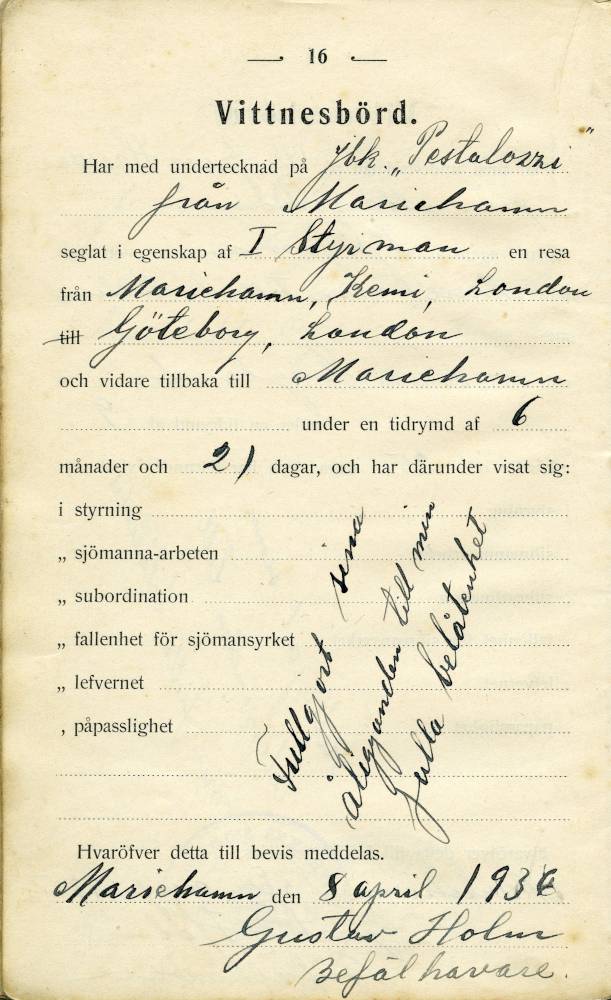 16
Vittnesbörd.
Har med undertecknad på Jbk. „Pestalozzi”
från Mariehamn
seglat i egenskap af I Styrman en resa
från Mariehamn, Kemi, London
till Göteborg, London
och vidare tillbaka till Mariehamn
under en tidrymd af 6
månader och 21 dagar, och har därunder visat sig:
i styrning
„ sjömanna-arbeten
„ subordination
„ fallenhet för sjömansyrket
„ lefvernet
, påpasslighet
Fullgjort sina
åligganden till min
fulla belåtenhet
Hvaröfver detta till bevis meddelas.
Mariehamn den 8 april
Gustav Holm
Befälhavare.